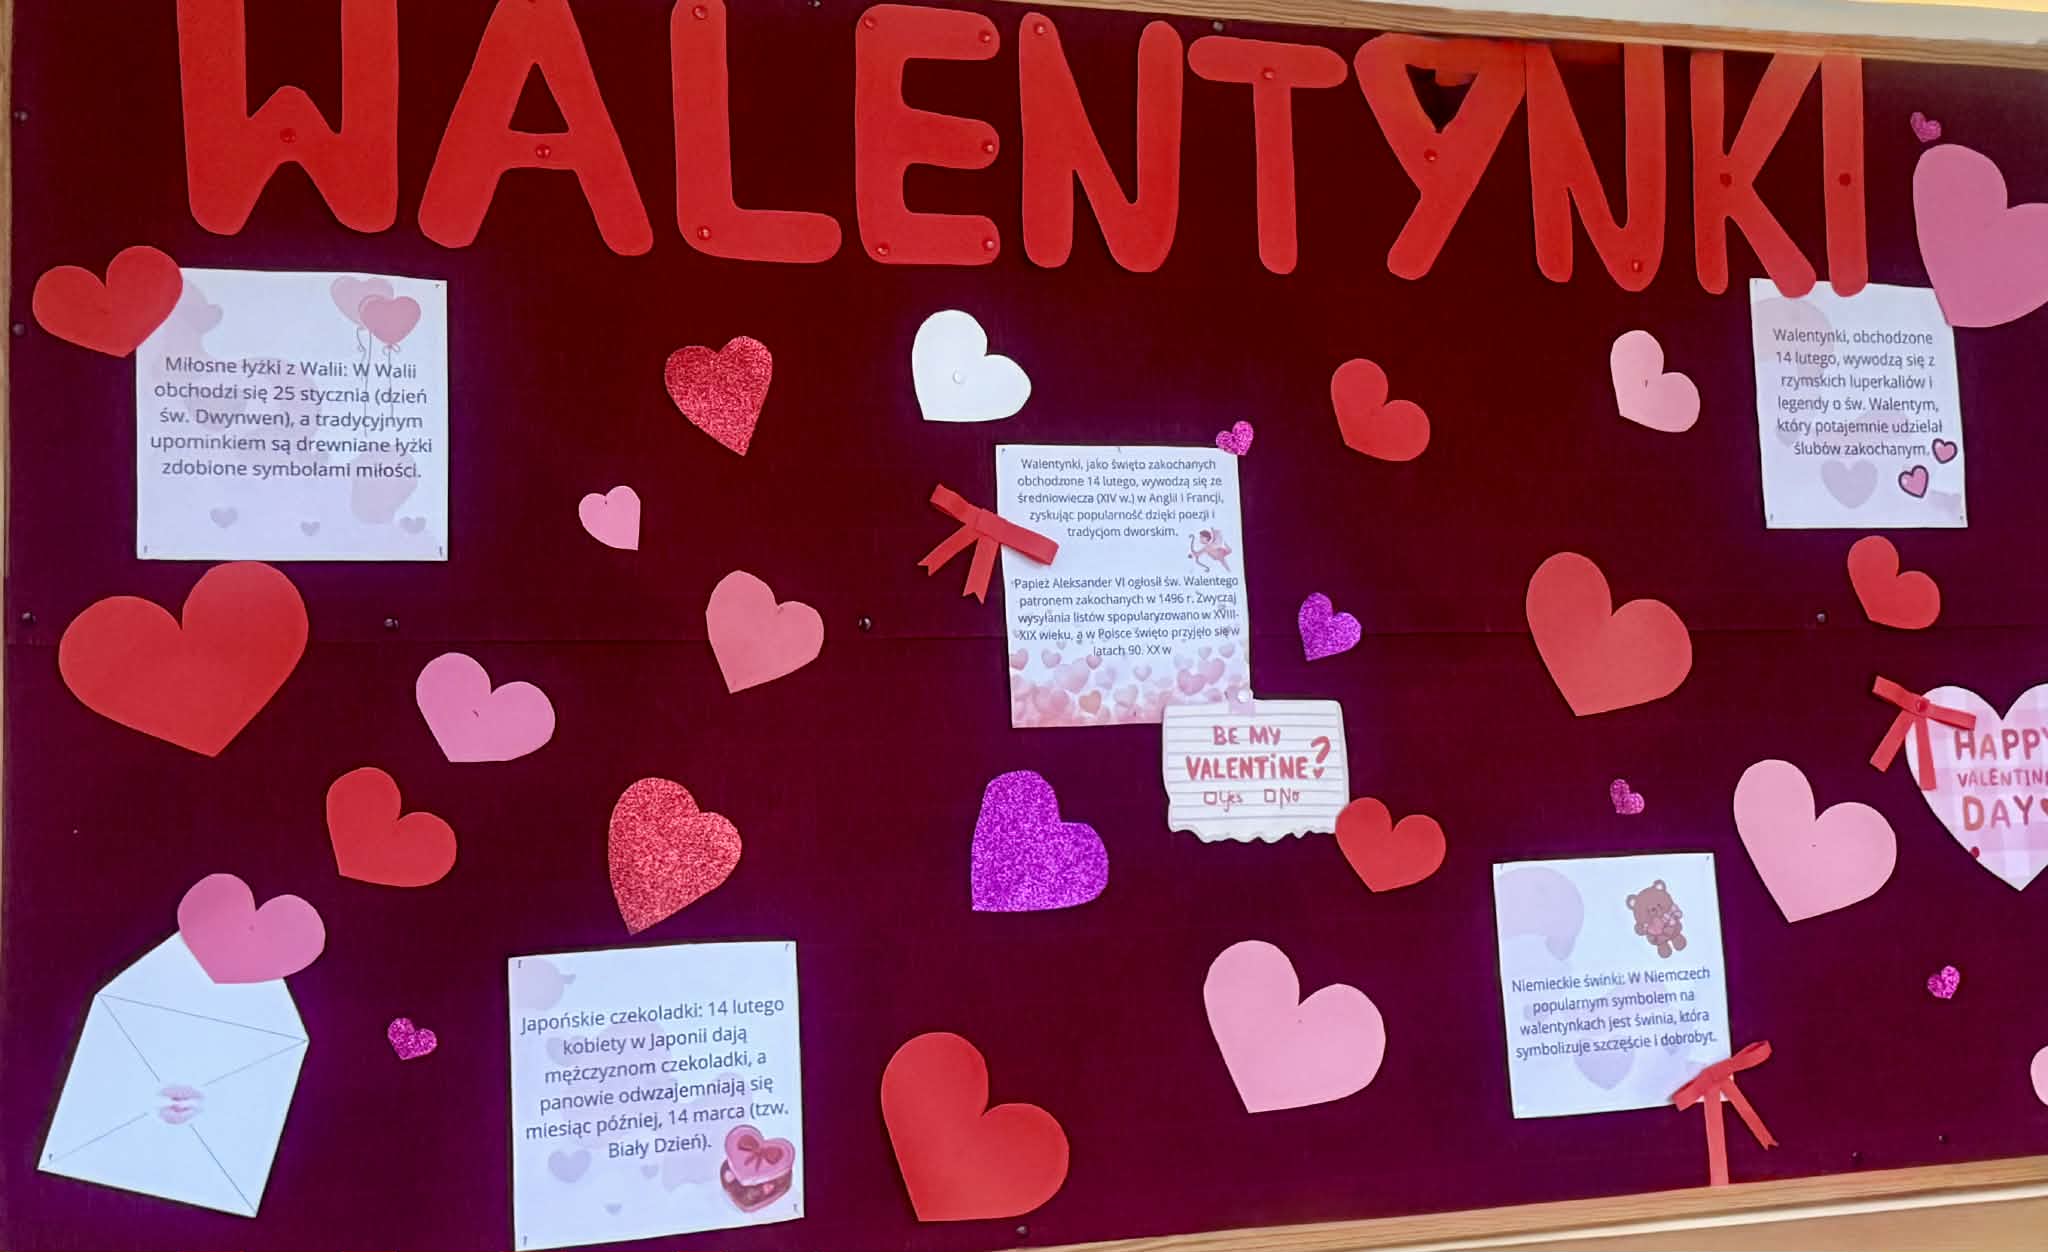 WALENTYNKI
Miłosne łyżki z Walii: W Walii
obchodzi się 25 stycznia (dzień
św. Dwynwen), a tradycyjnym
upominkiem są drewniane łyżki
zdobione symbolami miłości.
Walentynki, jako święto zakochanych
obchodzone 14 lutego, wywodzą się ze
średniowiecza (XIV w.) w Anglii i Francji,
zyskując popularność dzięki poezji i
tradycjom dworskim.
Papież Aleksander VI ogłosił św. Walentego
patronem zakochanych w 1496 r. Zwyczaj
wysyłania listów spopularyzowano w XVIII-
XIX wieku, a w Polsce święto przyjęło się w
latach 90. XX w
Walentynki, obchodzone
14 lutego, wywodzą się z
rzymskich luperkaliów i
legendy o św. Walentym,
który potajemnie udzielał
ślubów zakochanym.
BE MY
VALENTINE?
Yes No
HAPPY
VALENTIN
DAY
Japońskie czekoladki: 14 lutego
kobiety w Japonii dają
mężczyznom czekoladki, a
panowie odwzajemniają się
miesiąc później, 14 marca (tzw.
Biały Dzień).
Niemieckie świnki: W Niemczech
popularnym symbolem na
walentynkach jest świnia, która
symbolizuje szczęście i dobrobyt.